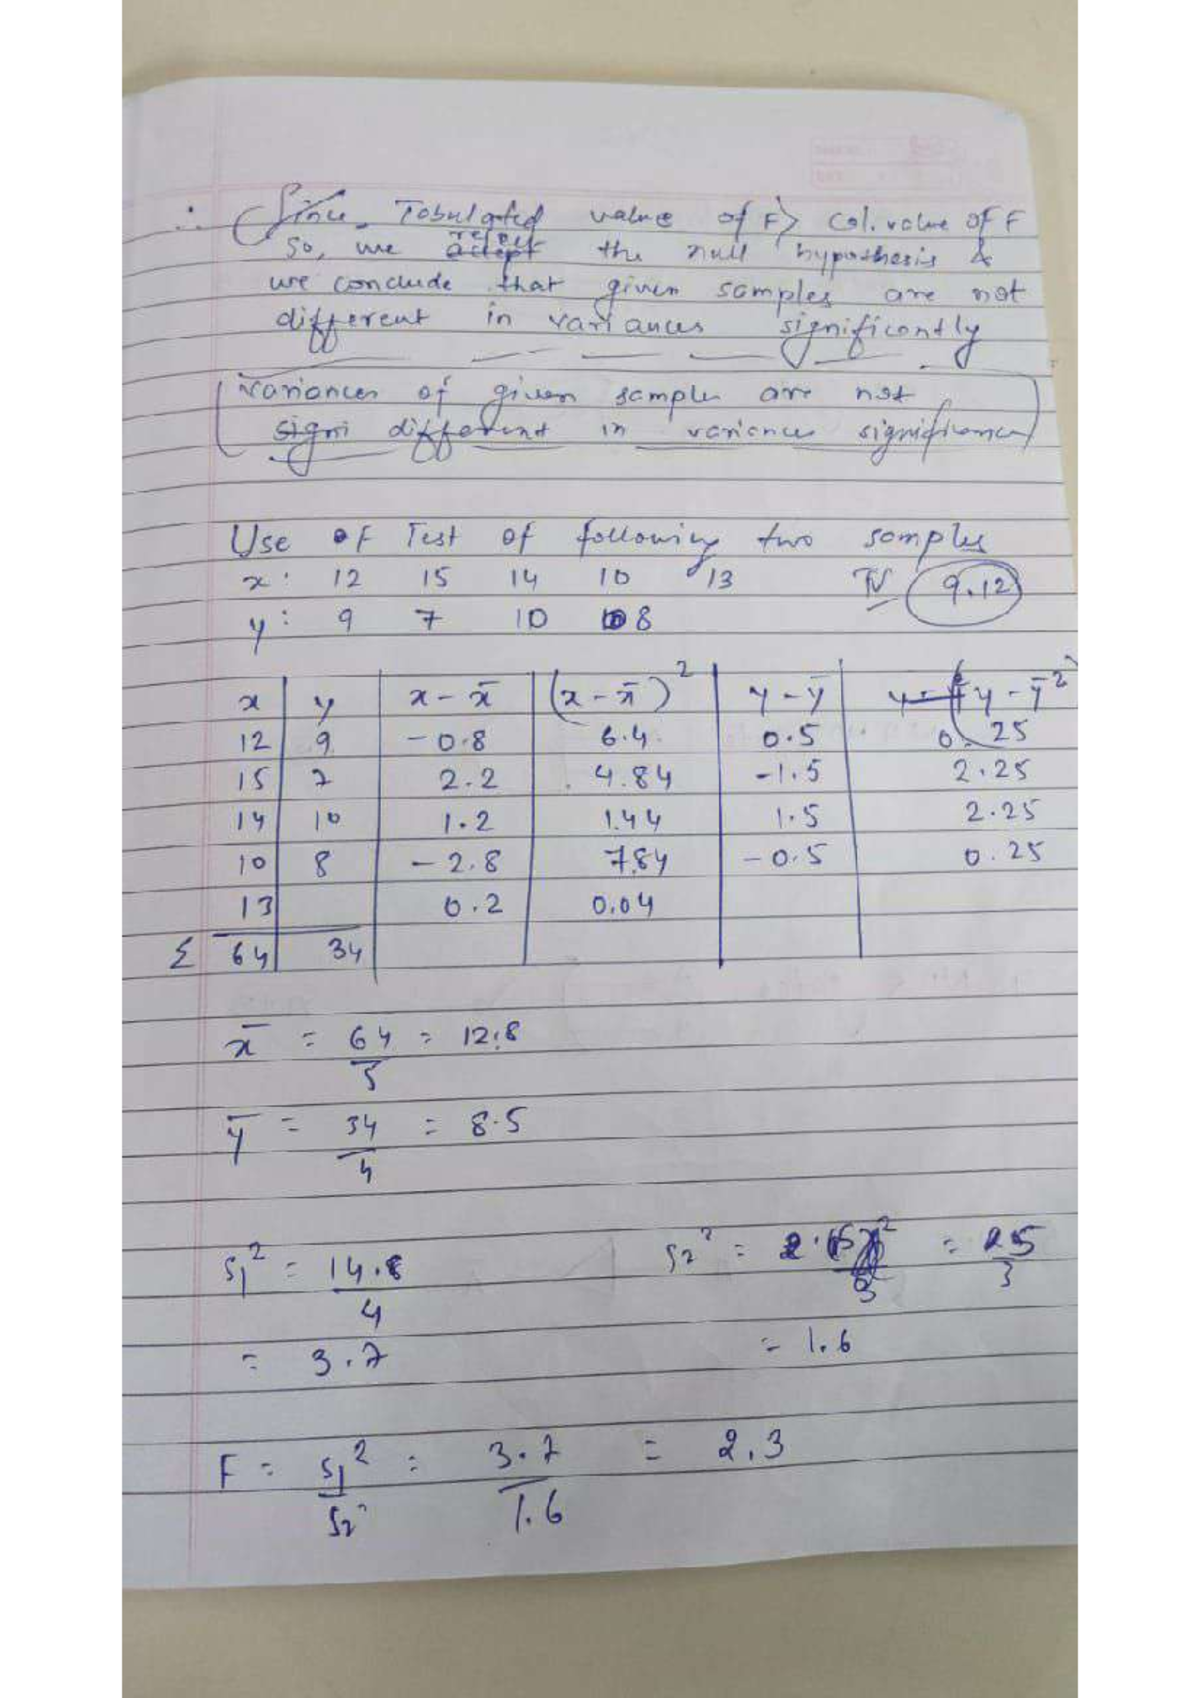 ∴ Since, Tabulated value of F > Cal. value of F
so, we accept reject the null hypothesis &
we conclude that given samples are not
different in variances significantly
(Variances of given samples are not
signi different in variances significance)
Use of F Test of following two samples
x: 12 15 14 10 13 TV 9.12
y: 9 7 10 8
x y x - x̄ (x - x̄)² y - ȳ (y - ȳ²
12 9 -0.8 6.4 0.5 0.25
15 7 2.2 4.84 -1.5 2.25
14 10 1.2 1.44 1.5 2.25
10 8 -2.8 7.84 -0.5 0.25
13 0.2 0.04
Σ 64 34
x̄ = 64/5 = 12.8
ȳ = 34/4 = 8.5
S₁² = 14.8/4 S₂² = = 25/3
= 3.7 = 1.6
F = S₁²/S₂² = 3.7/1.6 = 2.3